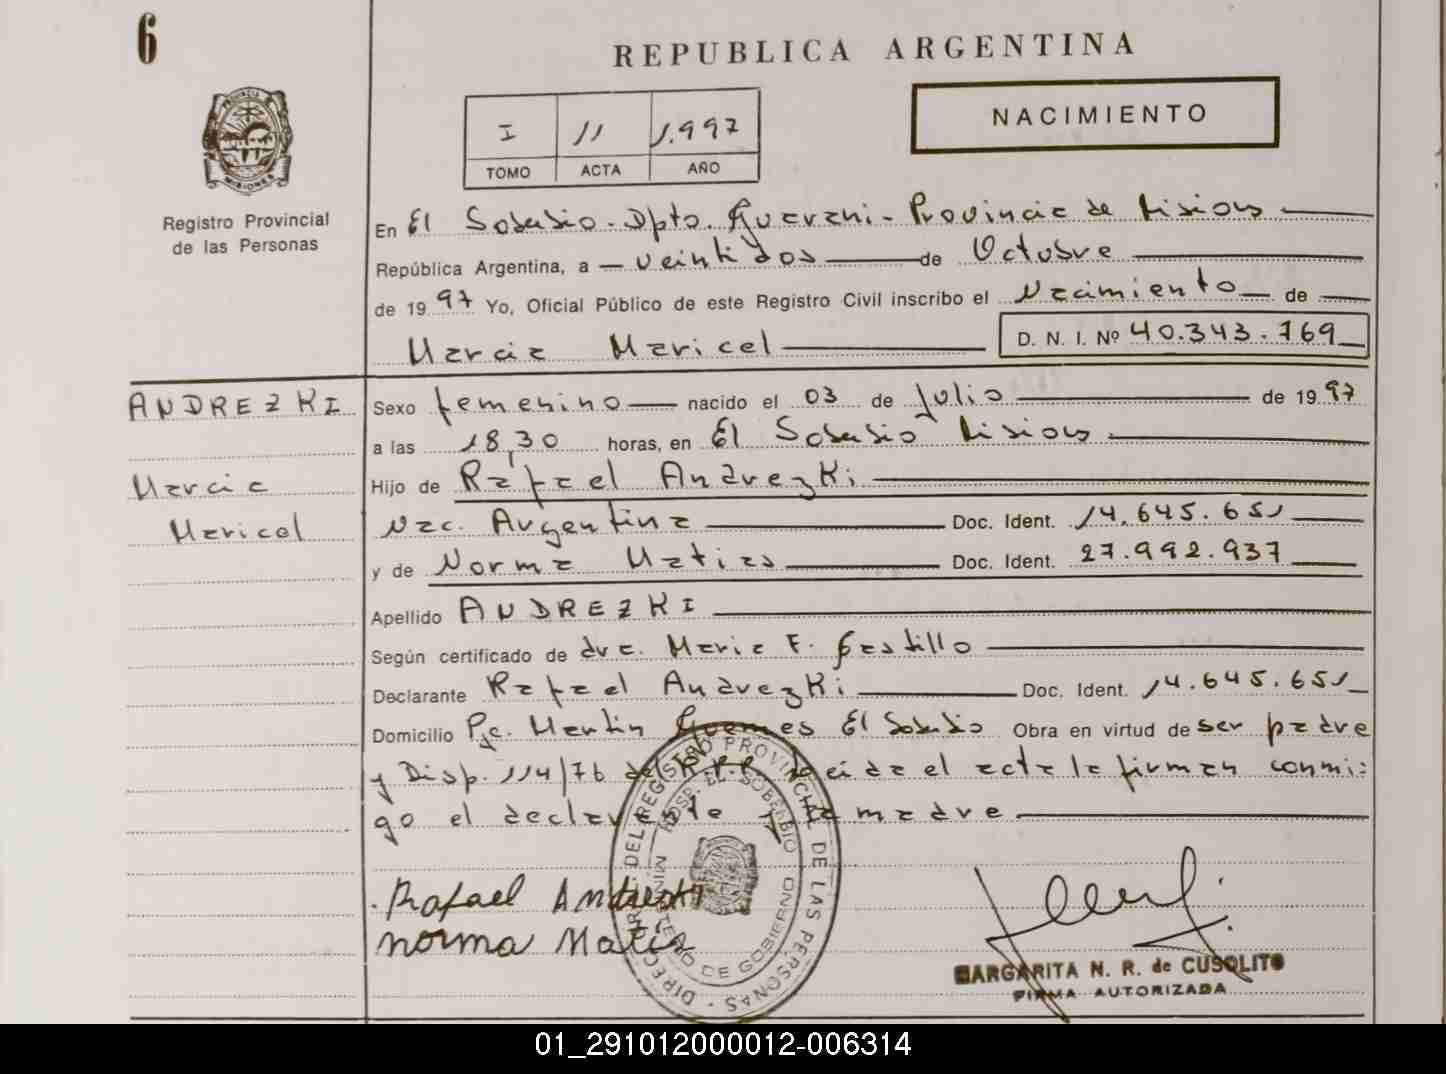 6
REPUBLICA ARGENTINA
NACIMIENTO
I 11 1.997
TOMO ACTA AÑO
PROVINCIA
MISIONES
Registro Provincial
de las Personas
En El Soberbio - Dpto. Guarani - Provincia de Misiones
República Argentina, a veintidos de Octubre
de 1997 Yo, Oficial Público de este Registro Civil inscribo el Nacimiento de
Marcia Maricel D. N. I. Nº 40.343.769
ANDREZKI Sexo femenino nacido el 03 de Julio de 1997
a las 18,30 horas, en El Soberbio Misiones
Marcia Hijo de Rafael Andrezki
Maricel Nac. Argentina Doc. Ident. 14.645.651
y de Norma Matias Doc. Ident. 27.992.937
Apellido ANDREZKI
Según certificado de dra. Maria F. Castillo
Declarante Rafael Andrezki Doc. Ident. 14.645.651
Domicilio Pje. Martin Guemes El Soberbio Obra en virtud de ser padre
y Disp. 114/76 del R.P.P. Leida el acta la firman conmi=
go el declarante y la madre
DIRECC. GRAL. DEL REGISTRO PROVINCIAL DE LAS PERSONAS
HOSP. EL SOBERBIO
MINISTERIO DE GOBIERNO
Rafael Andrezki
Norma Matias
MARGARITA N. R. de CUSOLITO
FIRMA AUTORIZADA
01_291012000012-006314